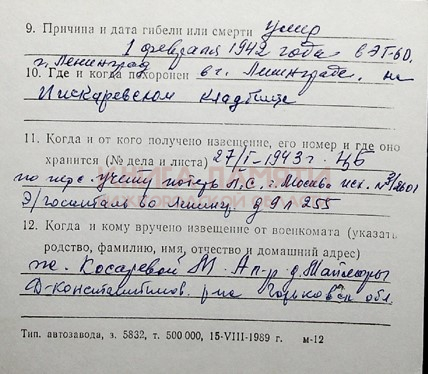 9. Причина и дата гибели или смерти умер
1 февраля 1942 года в ЭГ-60,
г. Ленинград
10. Где и когда похоронен в г. Ленинграде, на
Пискаревском кладбище
11. Когда и от кого получено извещение, его номер и где оно
хранится (№ дела и листа) 27/I-1943 г. ЦБ
по перс. учету потерь Л.С. г. Москва исх. №3/2601
Э/госпиталь во Ленинг. д 9 л 255
12. Когда и кому вручено извещение от военкомата (указать
родство, фамилию, имя, отчество и домашний адрес)
Косаревой М. А д.
Д-Константинов. р-на Горьковск обл.
Тип. автозавода, з. 5832, т. 500 000, 15-VIII-1989 г. м-12